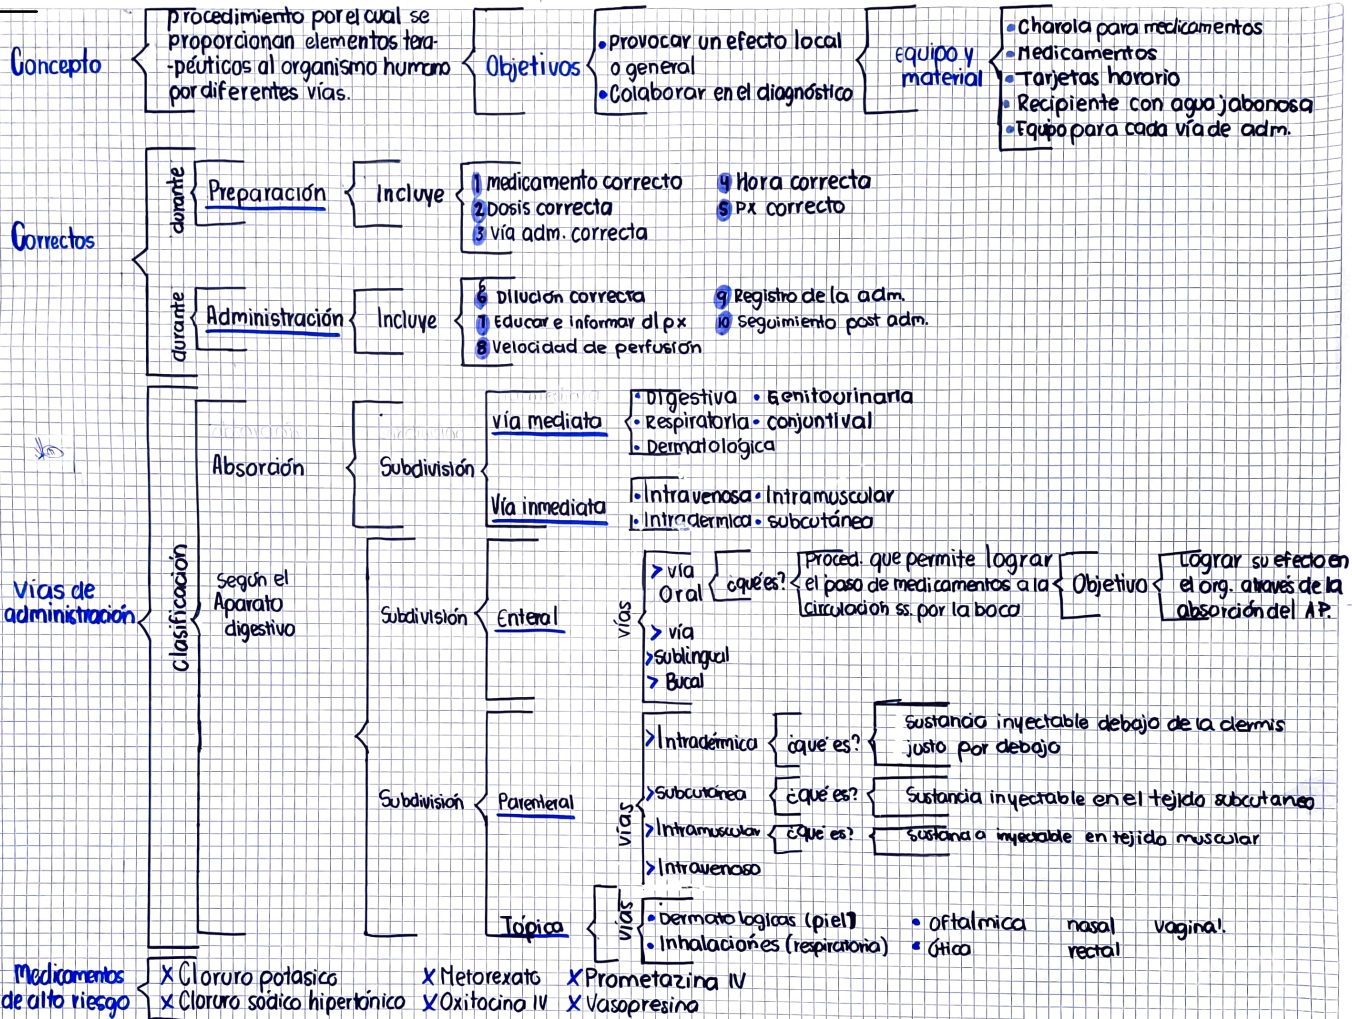 Concepto
procedimiento por el cual se
proporcionan elementos tera-
-péuticos al organismo humano
por diferentes vías.
Objetivos
• Provocar un efecto local
o general
• Colaborar en el diagnóstico
Equipo y
material
• Charola para medicamentos
• Medicamentos
• Tarjetas horario
• Recipiente con agua jabonosa
• Equipo para cada vía de adm.
Correctos
durante
Preparación
Incluye
1 medicamento correcto
2 Dosis correcta
3 vía adm. correcta
4 Hora correcta
5 Px correcto
durante
Administración
Incluye
6 Dilución correcta
7 Educar e informar al px
8 Velocidad de perfusión
9 Registro de la adm.
10 Seguimiento post adm.
Vías de
administración
Clasificación
Absorción
Subdivisión
vía mediata
• Digestiva • Genitourinaria
• Respiratoria • conjuntival
• Dermatológica
Vía inmediata
• Intravenosa • Intramuscular
• Intradermica • subcutáneo
Según el
Aparato
digestivo
Subdivisión
Enteral
vías
> vía
Oral
¿qué es?
Proced. que permite lograr
el paso de medicamentos a la
circulación ss. por la boca
Objetivo
Lograr su efecto en
el org. através de la
absorción del AP.
> vía
> Sublingual
> Bucal
Subdivisión
Parenteral
vías
> Intradérmica
¿qué es?
Sustancia inyectable debajo de la dermis
justo por debajo
> Subcutánea
¿qué es?
Sustancia inyectable en el tejido subcutaneo
> Intramuscular
¿que es?
Sustancia inyectable en tejido muscular
> Intravenoso
Tópica
vías
• Dermatologicas (piel)
• Inhalaciones (respiratoria)
• oftalmica nasal vaginal.
• Ótica rectal
Medicamentos
de alto riesgo
X Cloruro potasico X Metorexato X Prometazina IV
X Cloruro sódico hipertónico X Oxitocina IV X Vasopresina